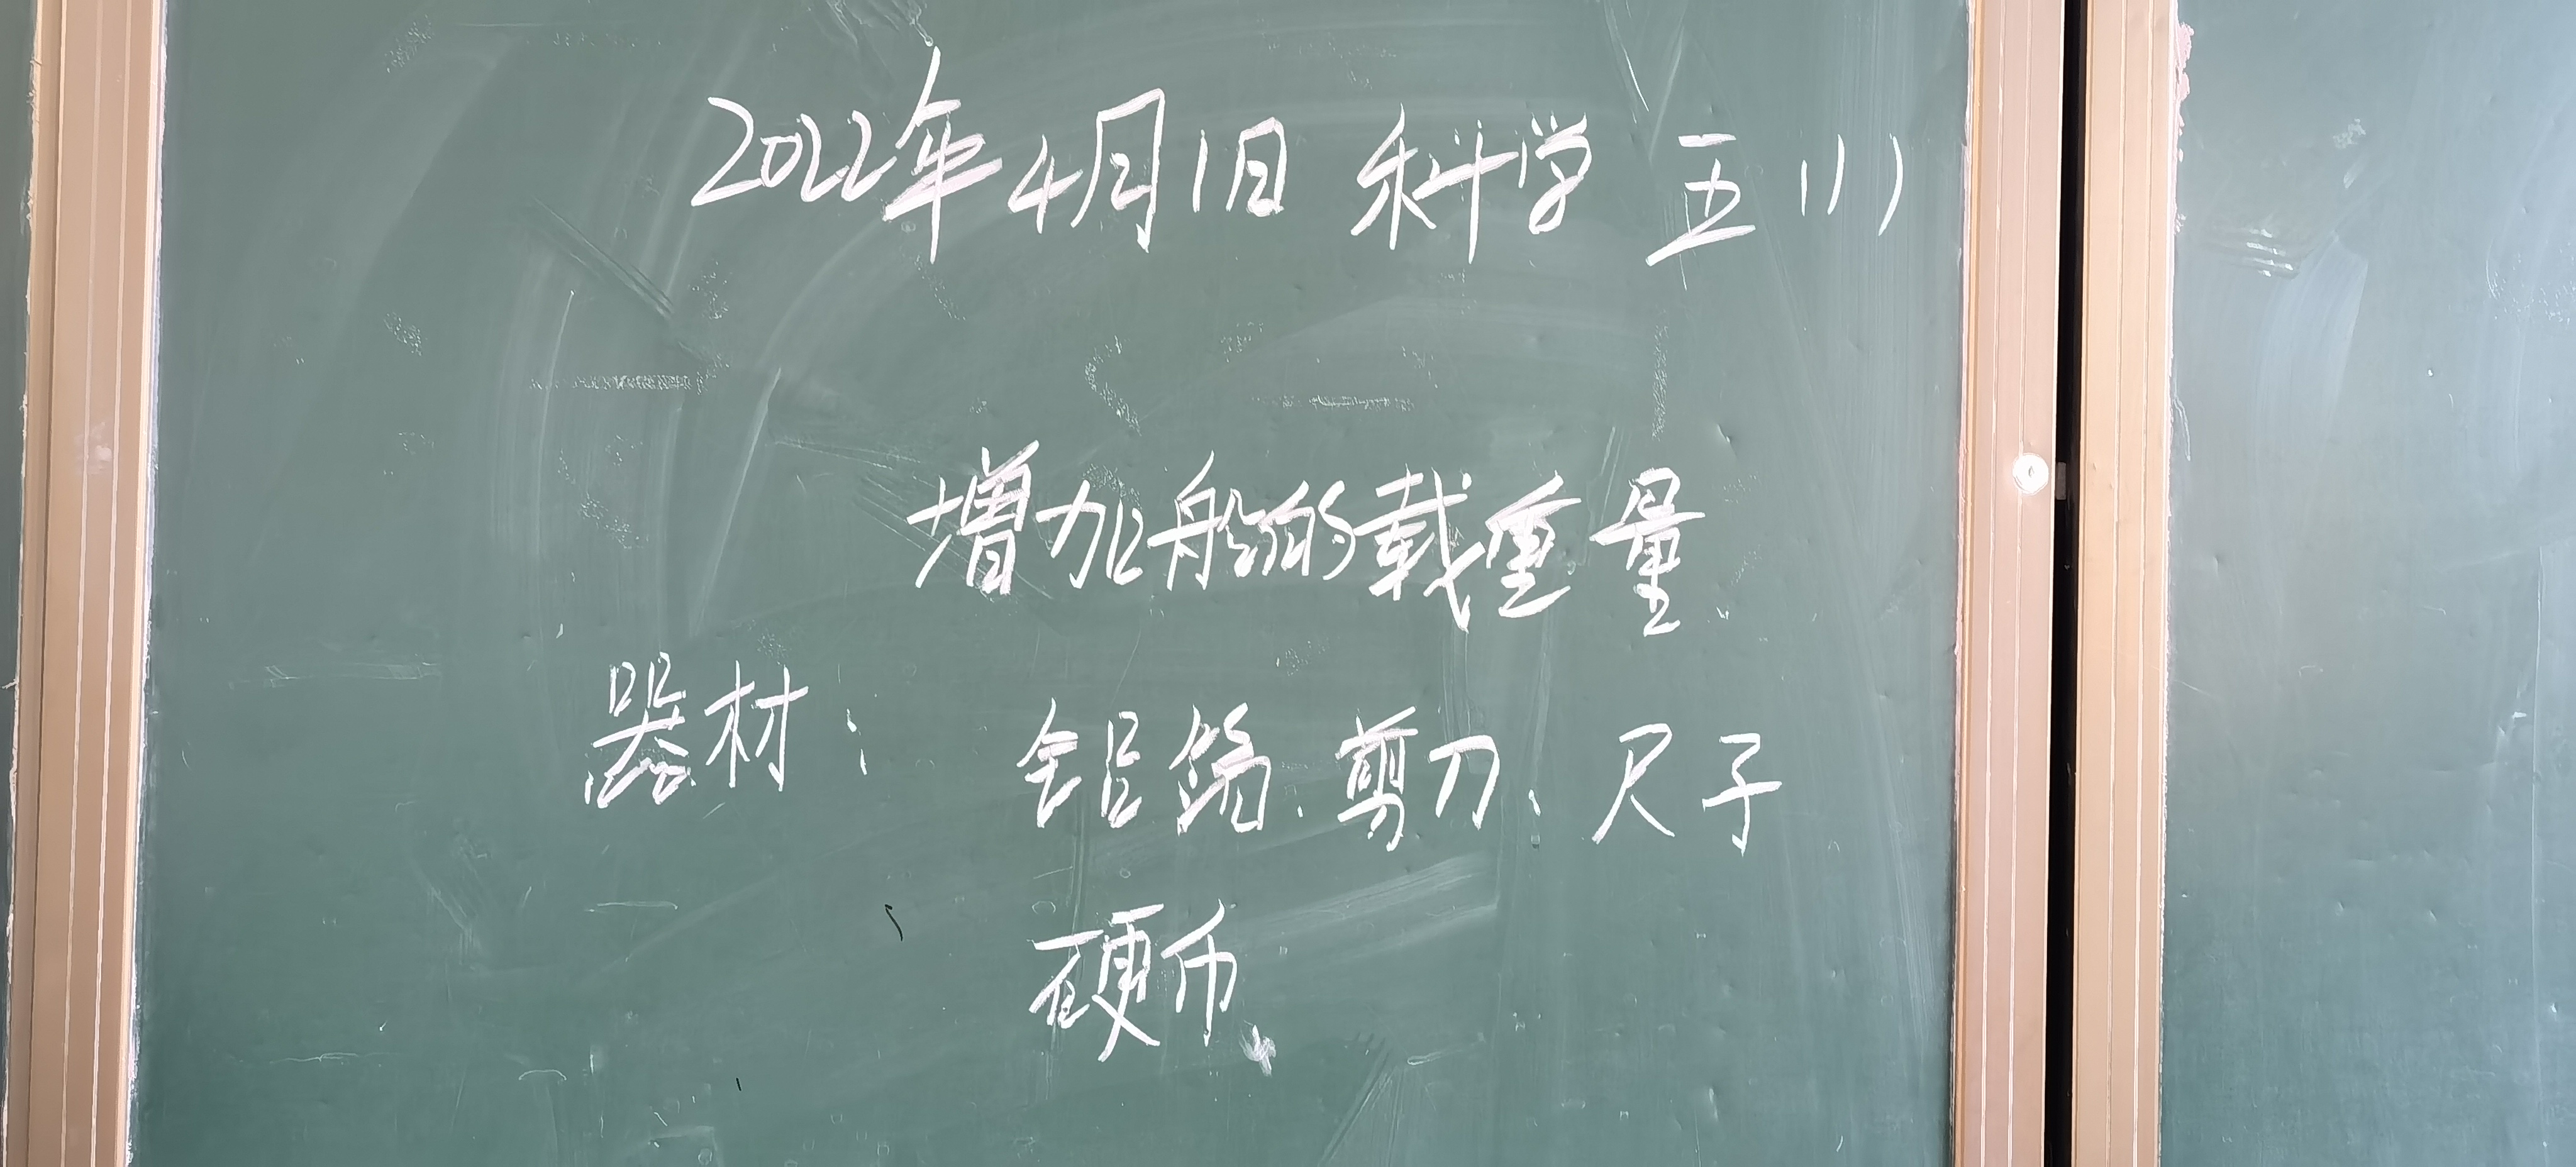 2022年4月1日 科学 五(1)
增加船的载重量
器材: 铝箔、剪刀、尺子
硬币